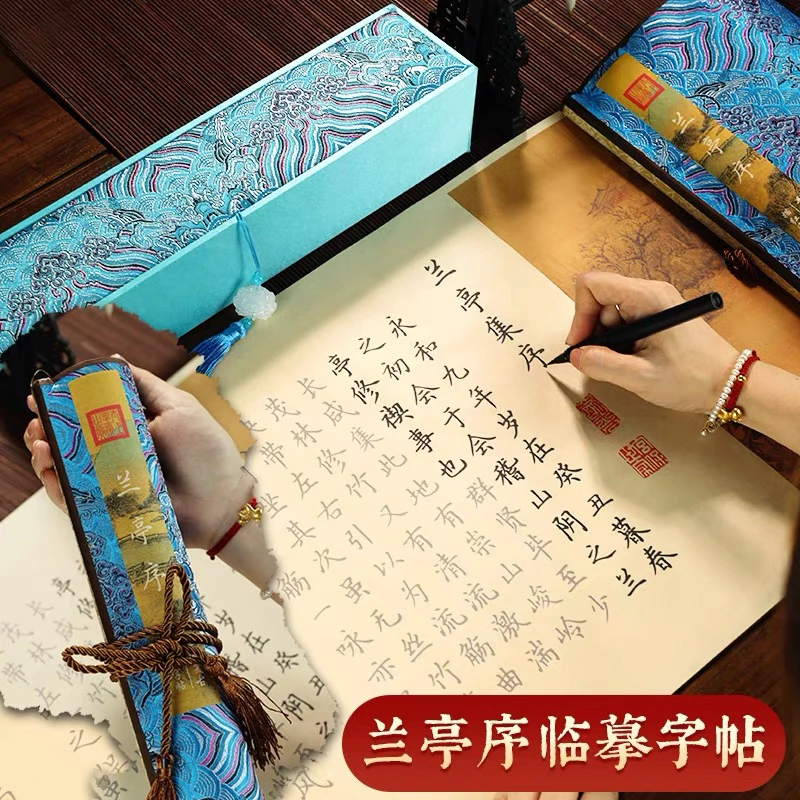 兰亭序
兰亭集序
永和九年岁在癸丑暮春
之初会于会稽山阴之兰
亭修禊事也群贤毕至少
长咸集此地有崇山峻岭
茂林修竹又有清流激湍
带左右引以为流觞曲
坐其次虽无丝竹
觞一咏亦
兰亭序
兰亭序临摹字帖